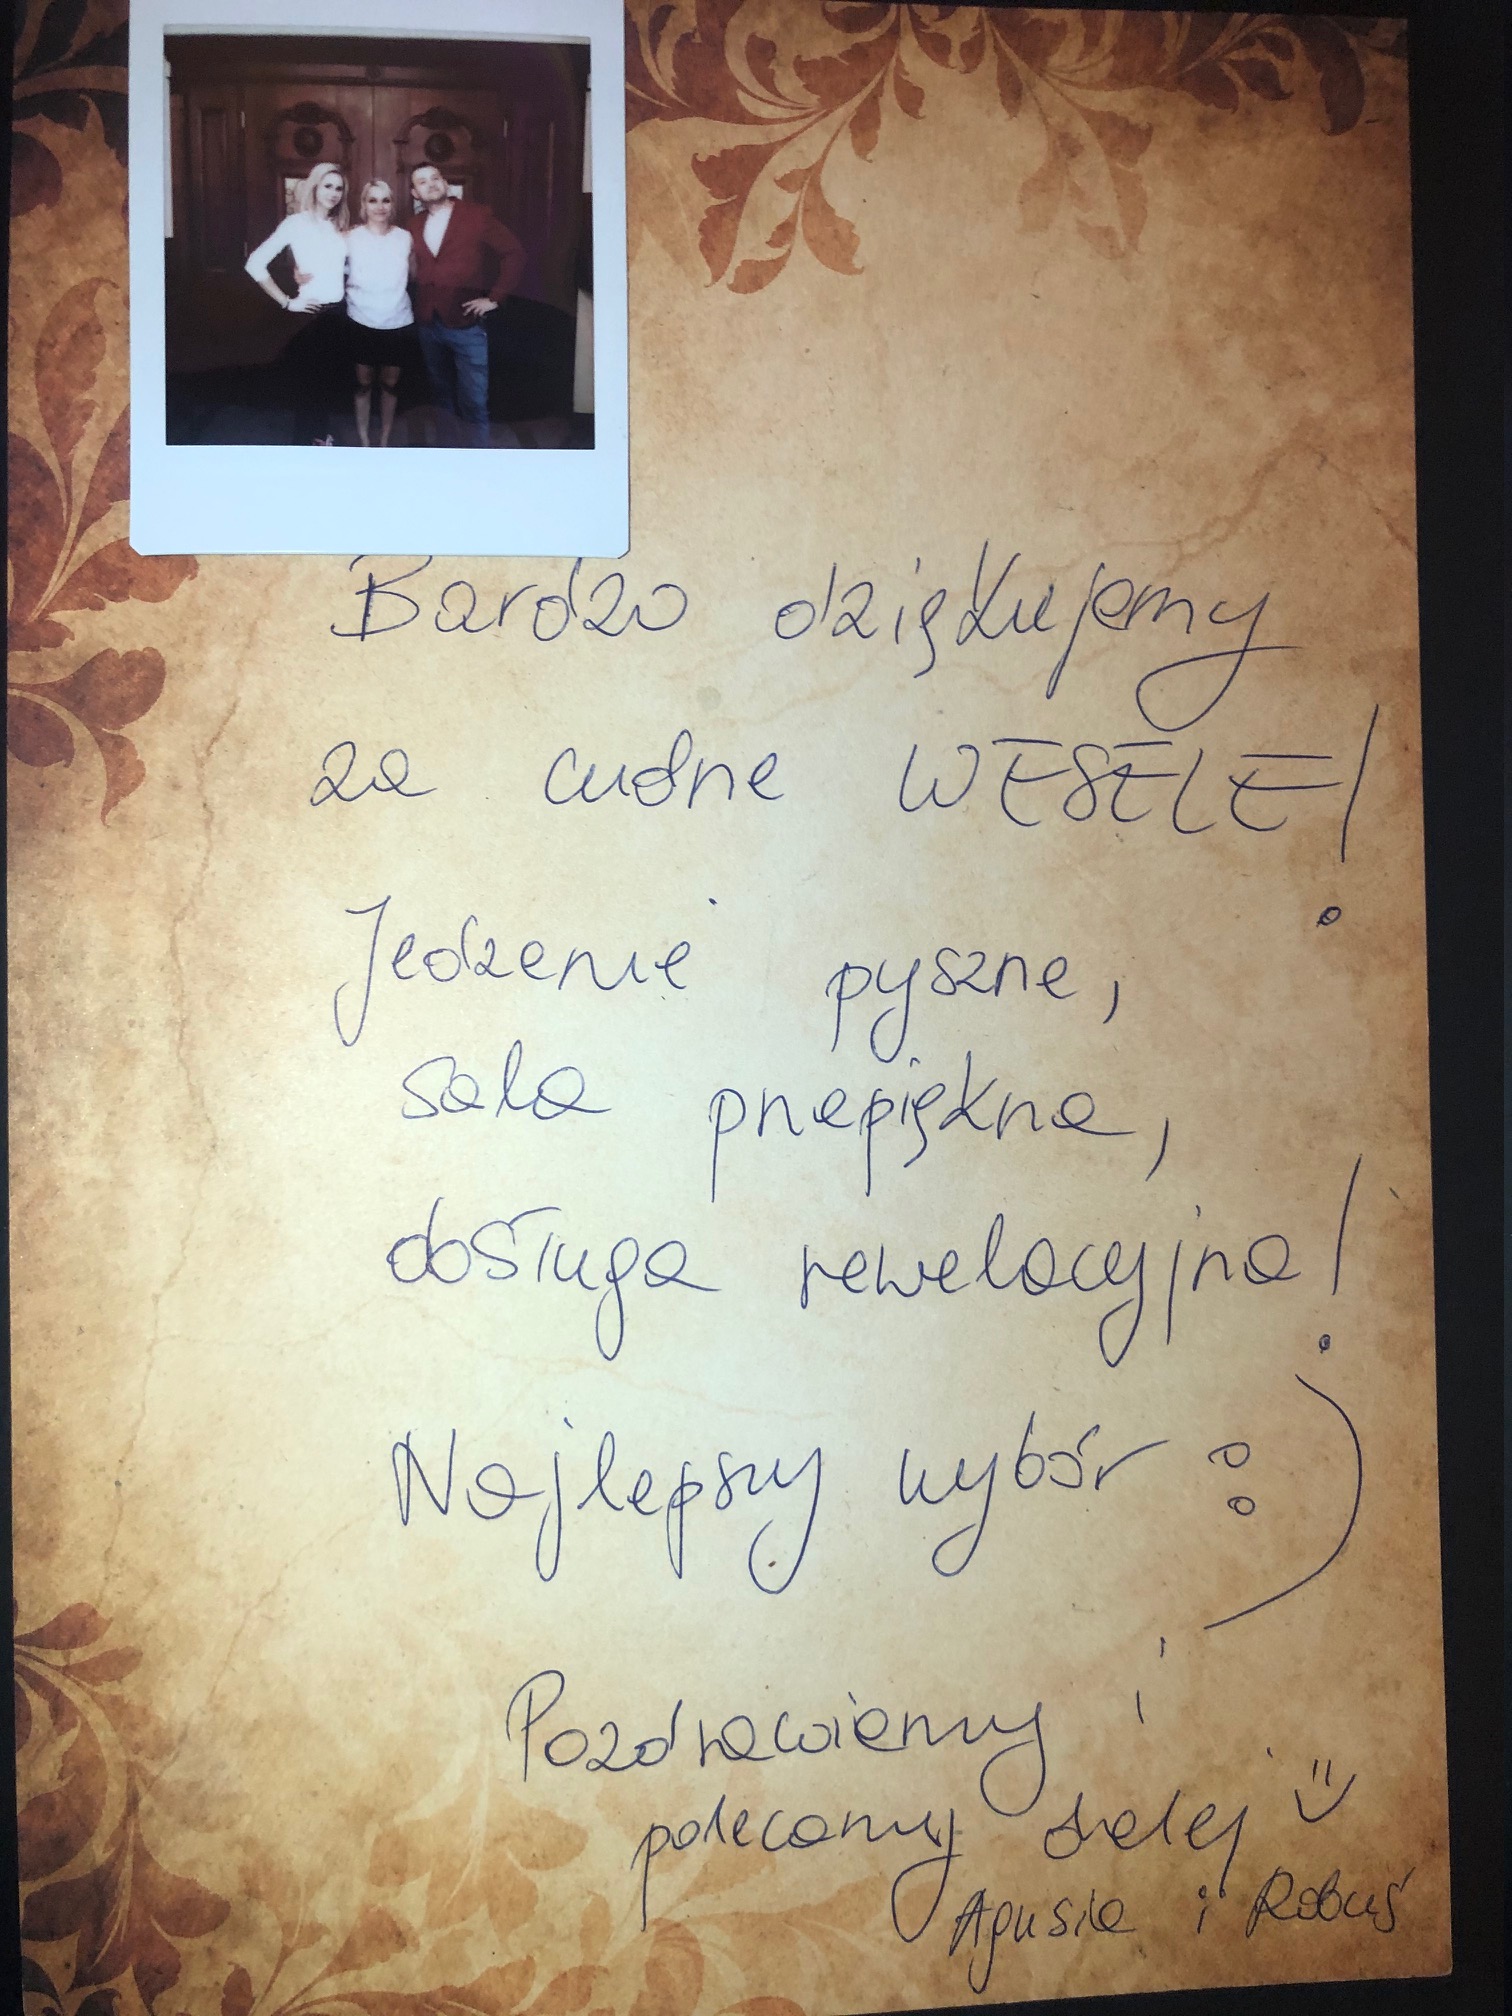 Bardzo dziękujemy
za cudne WESELE!
Jedzenie pyszne,
sala przepiękna,
obsługa rewelacyjna!
Najlepszy wybór :)
Pozdrawiamy i
polecamy dalej
Agusia i Robuś